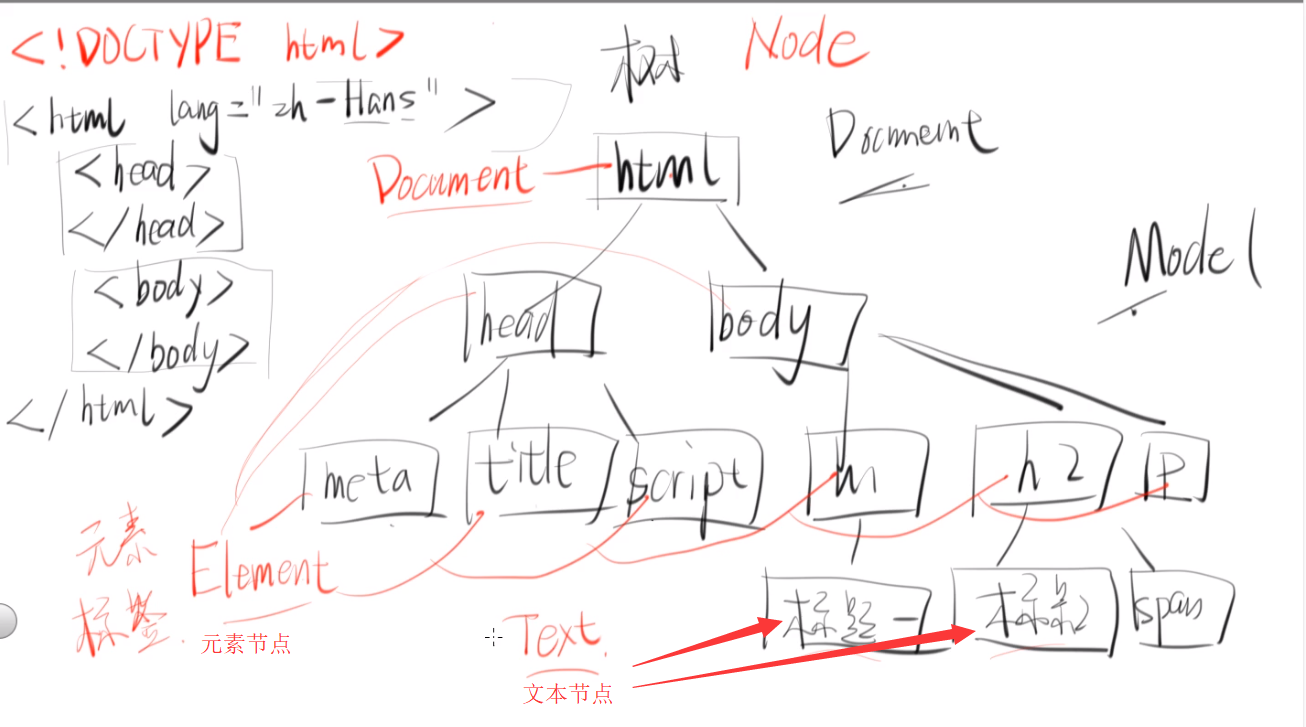 <!DOCTYPE html>
<html lang="zh-Hans">
<head>
</head>
<body>
</body>
</html>
树
Node
Document
Document
html
Model
head
body
meta
title
script
h1
h2
p
标题一
span
元素
标签
Element
元素节点
Text
文本节点